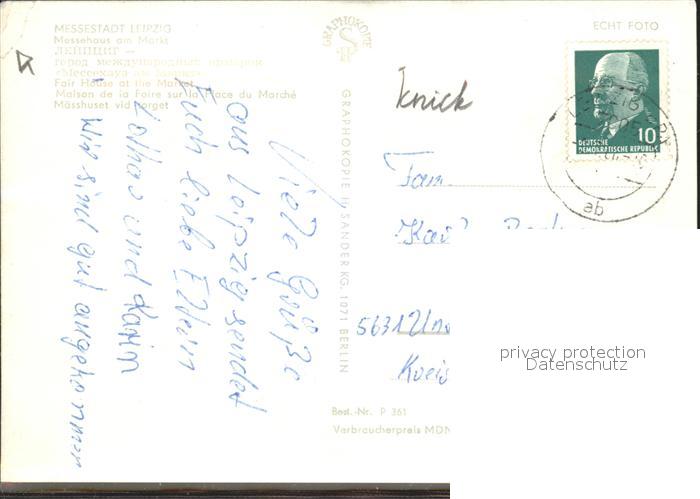 MESSESTADT LEIPZIG
Messehaus am Markt
ЛЕЙПЦИГ —
город международных ярмарок
«Мессехауз ам Маркт»
Fair House at the Market
Maison de la Foire sur la Place du Marché
Mässhuset vid torget
GRAPHOKOPIE
ECHT FOTO
knick
DEUTSCHE
DEMOKRATISCHE REPUBLIK
10
ab
Viele Grüße
aus Leipzig sendet
Euch liebe Eltern
Lothar und Karin
Wir sind gut angekommen
GRAPHOKOPIE H. SANDER KG, 1071 BERLIN
Fam.
5631
Kreis
Best.-Nr. P 361
Verbraucherpreis MDN
privacy protection
Datenschutz